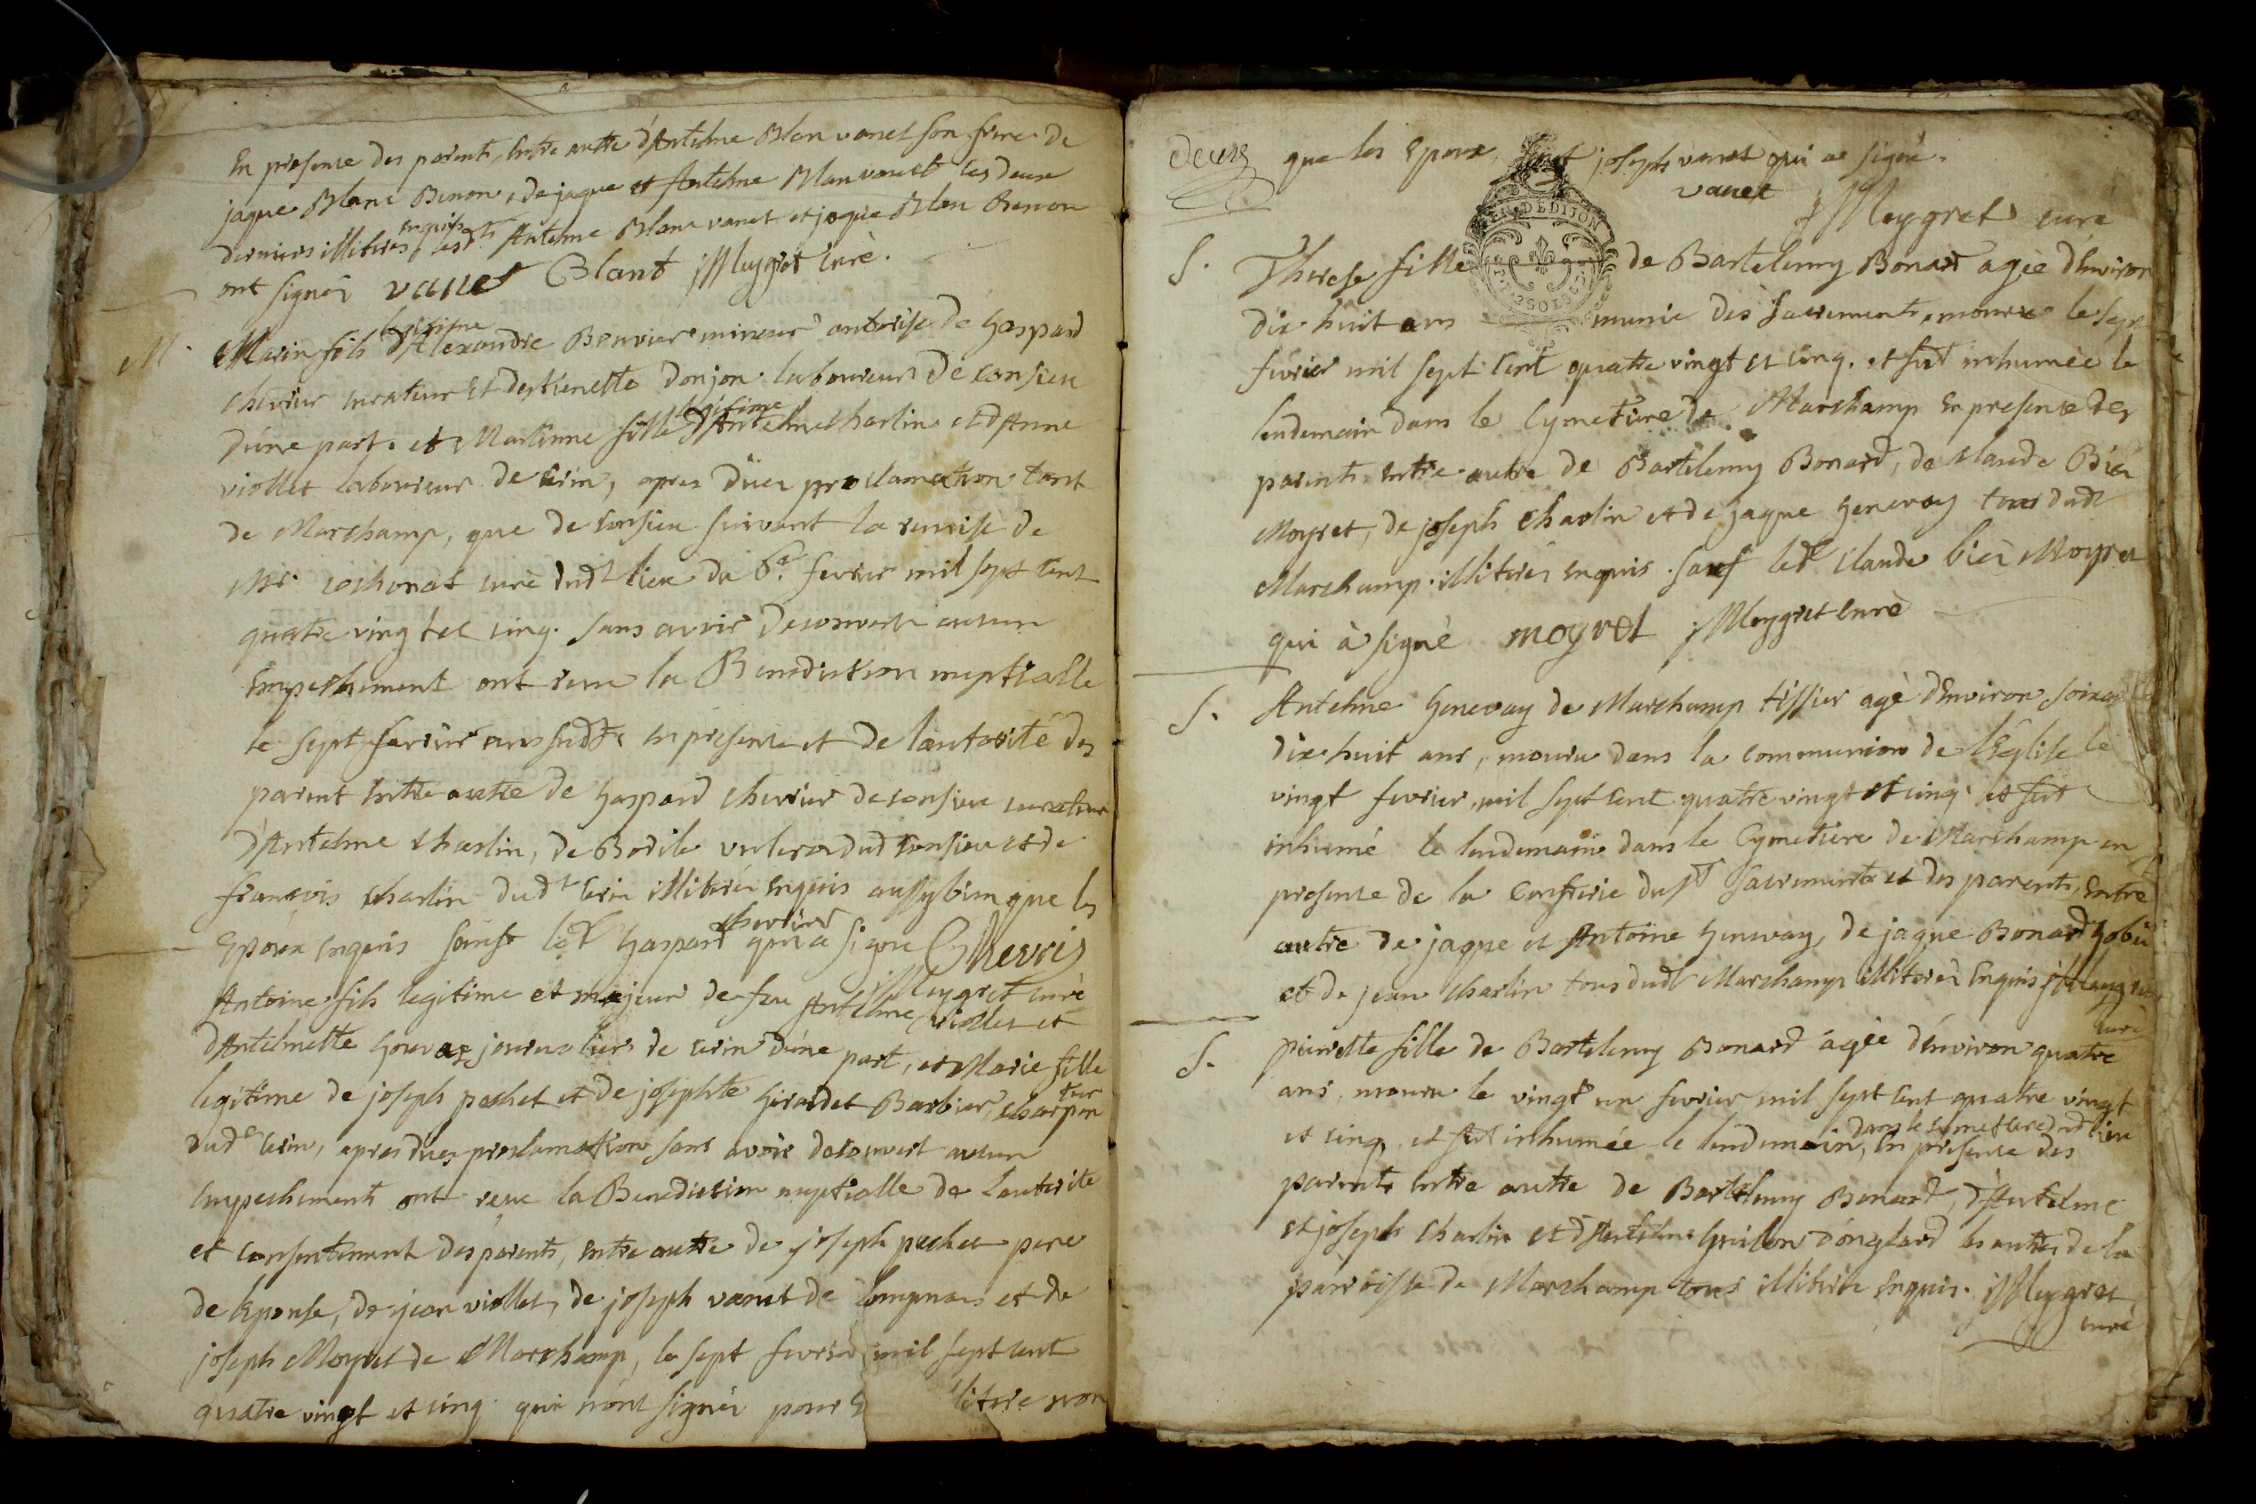 En presence des parents, Entre autre d'Antelme Blan vanet son frere de
jaque Blanc Benon, de jaque et Antelme Blan vanet les deux
derniers illiterés enquis, lesdts Antelme Blanc vanet et jaque Blan Benon
ont signéz vanet Blant jMeygret Curé.
M. Marin fils legitime d'Alexandre Bouvier mineur autorisé de Gaspard
Chevrier curateur et destienette donjon laboureur de Consieu
d'une part. et Marianne fille legitime d'Antelme Charlin et d'Anne
viollet laboureur de Cerin, apres düer proclamation tant
de Marchamp, que de Consieu suivant la remise de
Mr. Cochonat curé dudt lieu du 6e. fevrier mil sept Cent
quatre vingt et cinq. sans avoir decouvert aucun
Empechement ont recu la Benediction nuptialle
le sept fevrier ans susdt, en presence et de lautorité des
parent Entre autre de Gaspard Chevrier de Consieu curateur
d'Antelme Charlin, de Bodile dud Consieu et de
francois Charlin dudt Cerin illiterés Enquis aussy bien que les
Epoux Enquis sauf ledt Gaspard chevrier qui a signé Chevris
jMeygret Curé
Antoine fils legitime et majeur de feu Antelme viollet et
d'Antelmette Gouvaz journaliers de Cerin d'une part, et Marie fille
legitime de joseph pechet et de josephte Girardet Barbier, Charpentier
dudt Cerin, apres dues proclamation sans avoir decouvert aucun
Empechement ont reçue la Benediction nuptialle de Lautorite
et consentement des parents, entre autre de joseph pechet pere
de lepouse, de jean viollet, de joseph vanet de Lompnas et de
joseph Moyret de Marchamp, le sept fevrier mil sept cent
quatre vingt et cinq. qui n'ont signéz pour E litere non
deux que les Epoux, sauf joseph vanet qui ae signé.
vanet
jMeygret curé
GEN. DE DIJON
S. Therese fille de Bartelemy Bonard agée dEnviron
dix huit ans munie des Sacrements, mourre le sept
fevrier mil sept Cent quatre vingt et Cinq. et fut inhumée le
lendemain dans le Cymetiere de Marchamp En presence des
parents Entre autre de Bartelemy Bonard, de Claude Biéz
Moyret, de joseph Charlin et de jaque Genevay tous dudt
Marchamp illiterés Enquis. sauf ledt Claude biéz Moyret
qui à signé moyret jMeygret Curé
S. Antelme Genevay de Marchamp tissier agé dEnviron soixante
dix huit ans, mouru dans la communion de L'Eglise le
vingt fevrier mil sept Cent quatre vingt et cinq et fut
inhumé le lendemain dans le Cymetiere de Marchamp en
presence de la Confrerie du St Sacrements et des parents, Entre
autre de jaque et Antoine Genevay, de jaque Bonard
et de jean Charlin tous dudt Marchamp illiterés Enquis jMeygret
curé
S. pierrette fille de Bartelemy Bonard agée dEnviron quatre
ans, mouru le vingt un fevrier mil sept Cent quatre vingt
et cinq, et fut inhumée le lendemain, dans le cymetiere dudt lieu En presence des
parents Entre autre de Bartelemy Bonard, d'Antelme
et joseph Charlin et d'Antelme Guillon d'onglard les autres de la
parroisse de Marchamp tous illiterés Enquis. jMeygret
curé